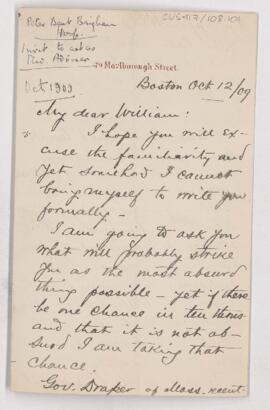 Peter Bent Brigham
Hosp.
CUS-417/108.101
Invit. to act as
Med. Advisor
79 Marlborough Street.
Oct 1909
Boston Oct 12/09
My dear William:
I hope you will ex-
cuse the familiarity and
yet somehow I cannot
bring myself to write you
formally -
I am going to ask you
what will probably strike
you as the most absurd
thing possible - yet if there
be one chance in ten thous-
and that it is not ab-
surd I am taking that
chance.
Gov. Draper of Mass. recent-